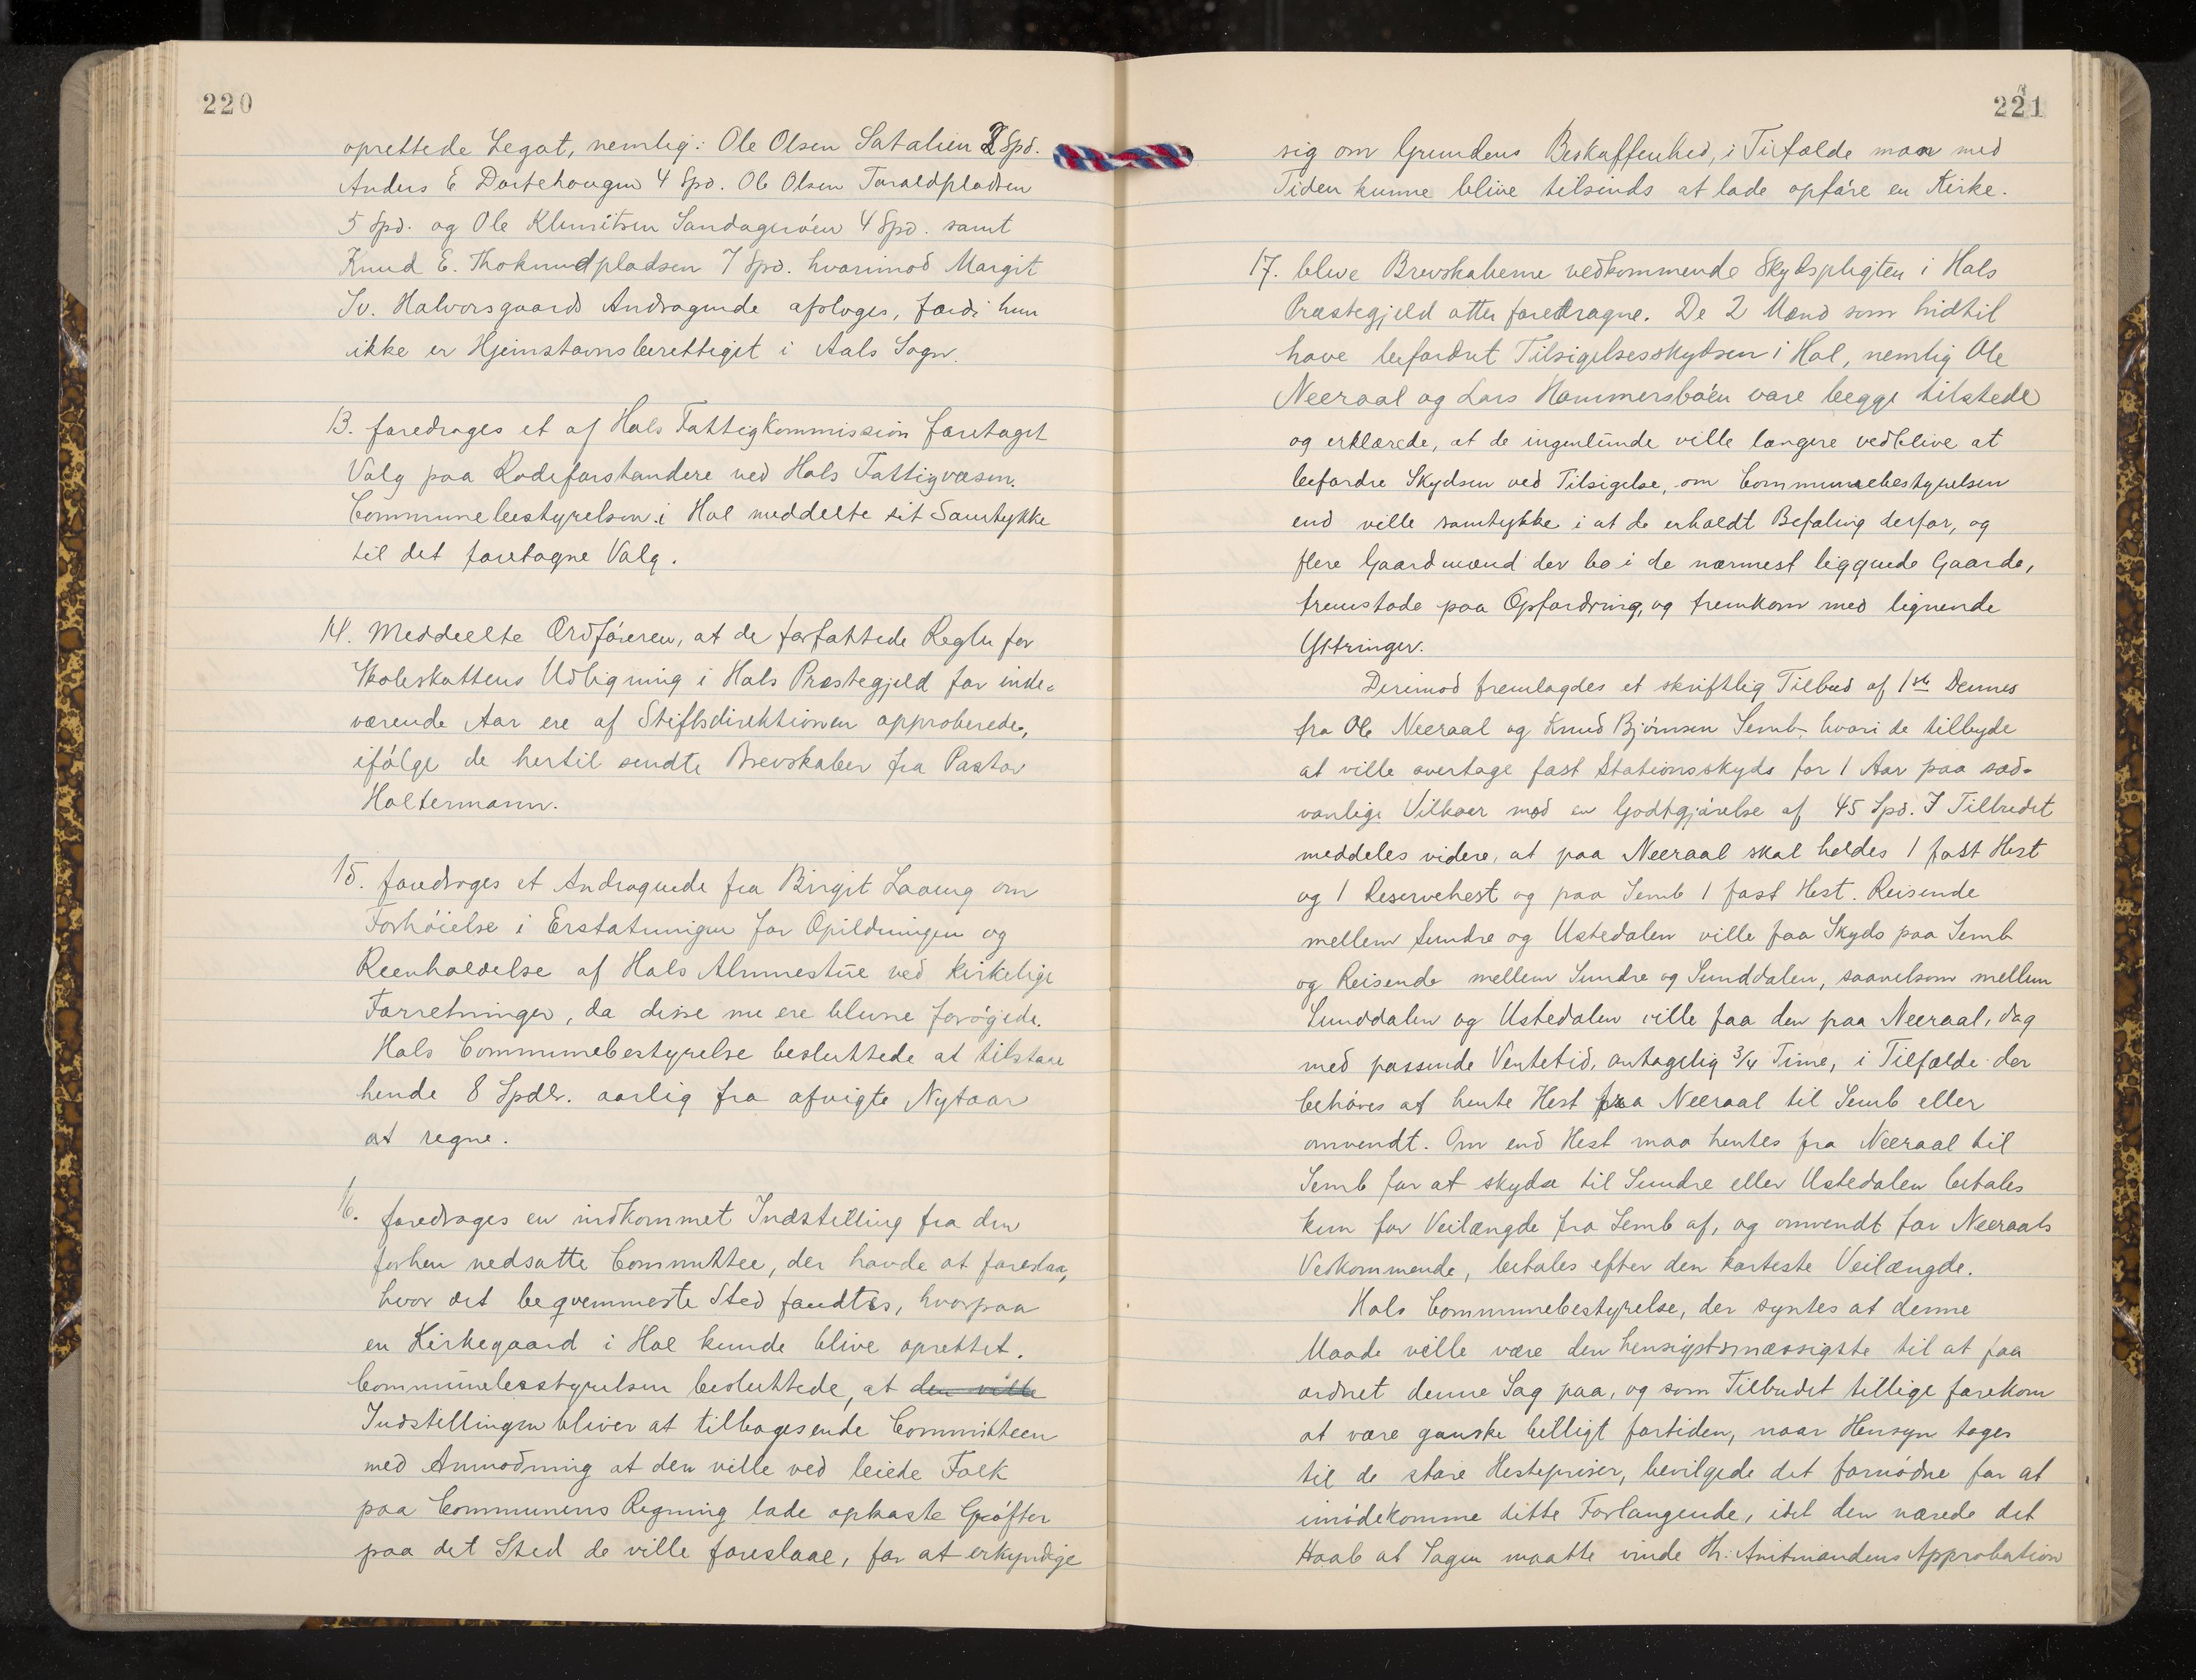 220
oprettede Legat, nemlig: Ole Olsen Satalien 2 Spd.
Anders E Dortehougen 4 Spd. Ole Olsen Toraldpladsen
5 Spd. og Ole Klemitsen Sandagerøen 4 Spd. samt
Knud E. Thoknudpladsen 7 Spd. hvorimod Margit
Sv. Halvorsgaards Andragende afsloges, fordi hun
ikke er Hjemstavnsberettiget i Aals Sogn.
13. foredroges et af Hols Fattigkommission foretaget
Valg paa Rodeforstandere ved Hols Fattigvæsen.
Communebestyrelsen i Hol meddelte sit Samtykke
til det foretagne Valg.
14. Meddeelte Ordføreren, at de forfattede Regler for
Skoleskattens Udligning i Hols Præstegjeld for inde-
værende Aar ere af Stiftsdirektionen approberede,
ifølge de hertil sendte Brevskaber fra Pastor
Holtermann.
15. foredroges et Andragende fra Birgit Laaeng om
Forhøielse i Erstatningen for Opildningen og
Reenholdelse af Hols Almuestue ved kirkelige
Forretninger, da disse nu ere blevne forøgede.
Hols Communebestyrelse besluttede at tilstaae
hende 8 Spdlr. aarlig fra afvigte Nytaar
at regne.
16. foredroges en indkommet Indstilling fra den
forhen nedsatte Committee, der havde at foreslaa,
hvor det beqvemmeste Sted fandtes, hvorpaa
en Kirkegaard i Hol kunde blive oprettet.
Communebestyrelsen besluttede, at den ville
Indstillingen bliver at tilbagesende Committeen
med Anmodning at den ville ved leiede Folk
paa Communens Regning lade opkaste Grøfter
paa det Sted de ville foreslaae, for at erkyndige
221
sig om Grundens Beskaffenhed, i Tilfælde man med
Tiden kunne blive tilsinds at lade opføre en Kirke.
17. bleve Brevskaberne vedkommende Skydspligten i Hols
Præstegjeld atter foredragne. De 2 Mænd som hidtil
have befordret Tilsigelsesskydsen i Hol, nemlig Ole
Neeraal og Lars Hammersbøen vare begge tilstede
og erklærede, at de ingenlunde ville længere vedblive at
befordre Skydsen ved Tilsigelse, om Communebestyrelsen
end ville samtykke i at de erholdt Befaling derfor, og
flere Gaardmænd der bo i de nærmest liggende Gaarde,
fremstode paa Opfordring, og fremkom med lignende
Yttringer.
Derimod fremlagdes et skriftlig Tilbud af 1ste Dennes
fra Ole Neeraal og Knud Bjørnsen Semb, hvori de tilbyde
at ville overtage fast Stationsskyds for 1 Aar paa sæd-
vanlige Vilkaar mod en Godtgjørelse af 45 Spd. I Tilbudet
meddeles videre, at paa Neeraal skal holdes 1 fast Hest
og 1 Reservehest og paa Semb 1 fast Hest. Reisende
mellem Sundre og Ustedalen ville faa Skyds paa Semb
og Reisende mellem Sundre og Sunddalen, saavelsom mellem
Sunddalen og Ustedalen ville faa den paa Neeraal, dog
med passende Ventetid, antagelig 3/4 Time, i Tilfælde der
behøves at hente Hest fra Neeraal til Semb eller
omvendt. Om end Hest maa hentes fra Neeraal til
Semb for at skydse til Sundre eller Ustedalen betales
kun for Veilængde fra Semb af, og omvendt for Neeraals
Vedkommende, betales efter den korteste Veilængde.
Hols Communebestyrelse, der syntes at denne
Maade ville være den hensigtsmæssigste til at faa
ordnet denne Sag paa, og som Tilbudet tillige forekom
at være ganske billigt fortiden, naar Hensyn tages
til de store Hestepriser, bevilgede det fornødne for at
imødekomme dette Forlangende, idet den nærede det
Haab at Sagen maatte vinde Hr. Amtmandens Approbation